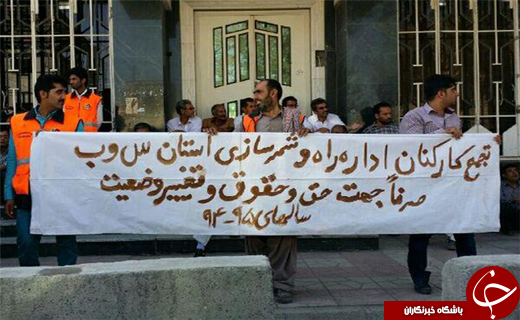 تجمع کارکنان اداره راه و شهرسازی استان س و ب
صرفاً جهت حق و حقوق و تغییر وضعیت
سالهای ۹۵-۹۴
باشگاه خبرنگاران